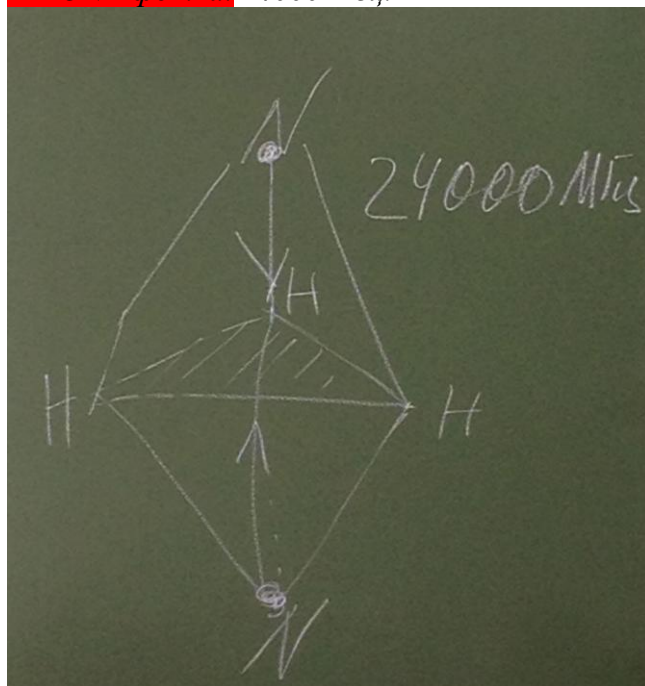 N
24000 МГц
H
H
H
N